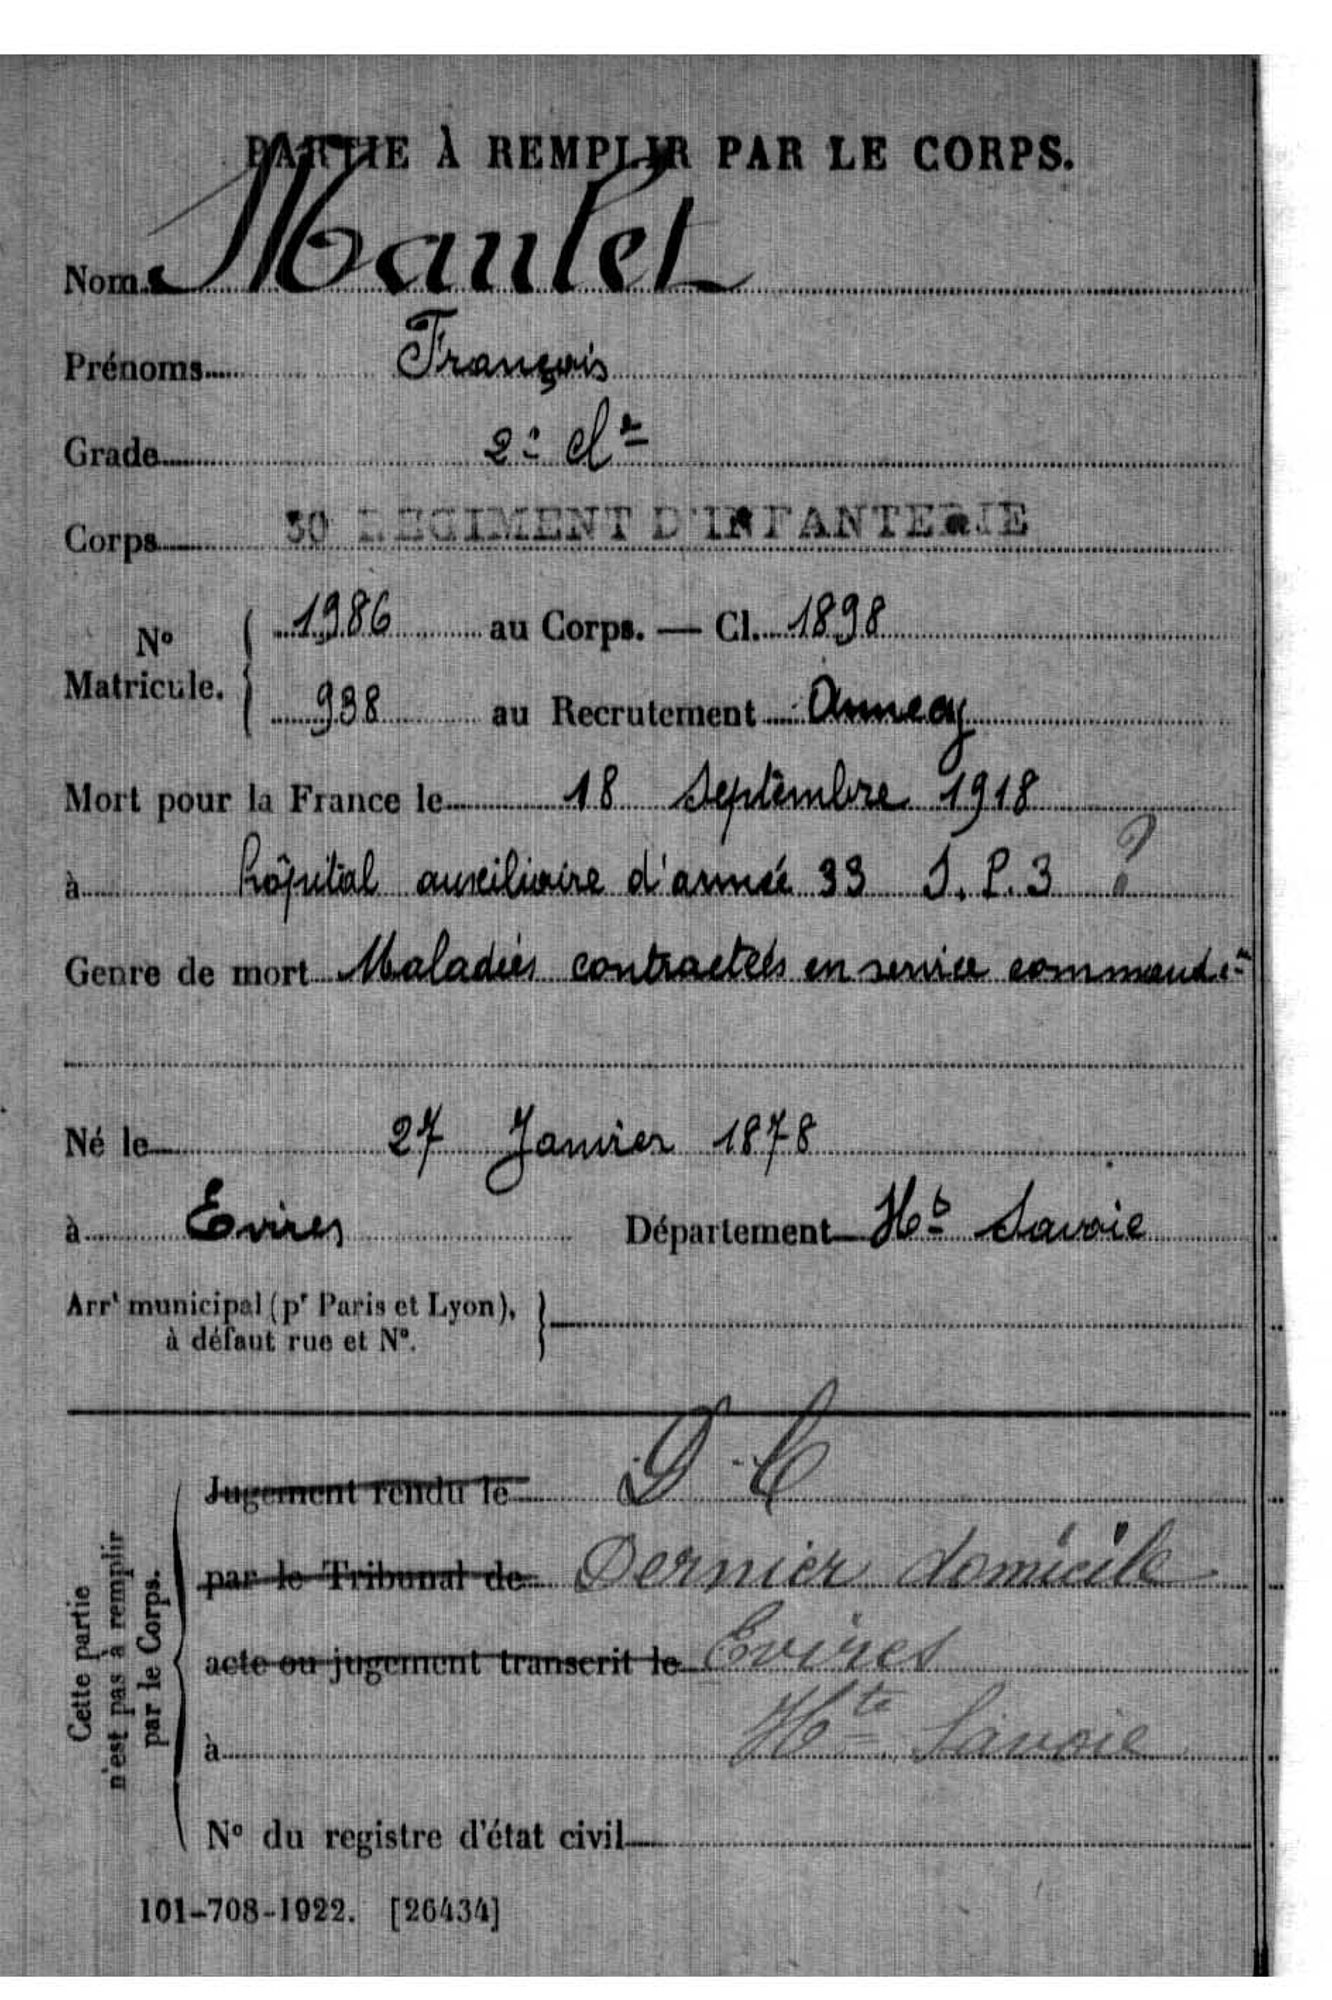 PARTIE À REMPLIR PAR LE CORPS.
Nom Maulet
Prénoms François
Grade 2e Cle
Corps 30 REGIMENT D'INFANTERIE
No Matricule. 1986 au Corps. — Cl. 1898
938 au Recrutement Annecy
Mort pour la France le 18 Septembre 1918
à hôpital auxiliaire d'armée 33 S.P.3 ?
Genre de mort Maladies contractées en service commandé
Né le 27 Janvier 1878
à Evires Département Hte Savoie
Arrt municipal (pr Paris et Lyon),
à défaut rue et No.
Jugement rendu le D C
par le Tribunal de Dernier domicile
acte ou jugement transcrit le Evires
à Hte Savoie
No du registre d'état civil
Cette partie
n'est pas à remplir
par le Corps.
101-708-1922. [26434]